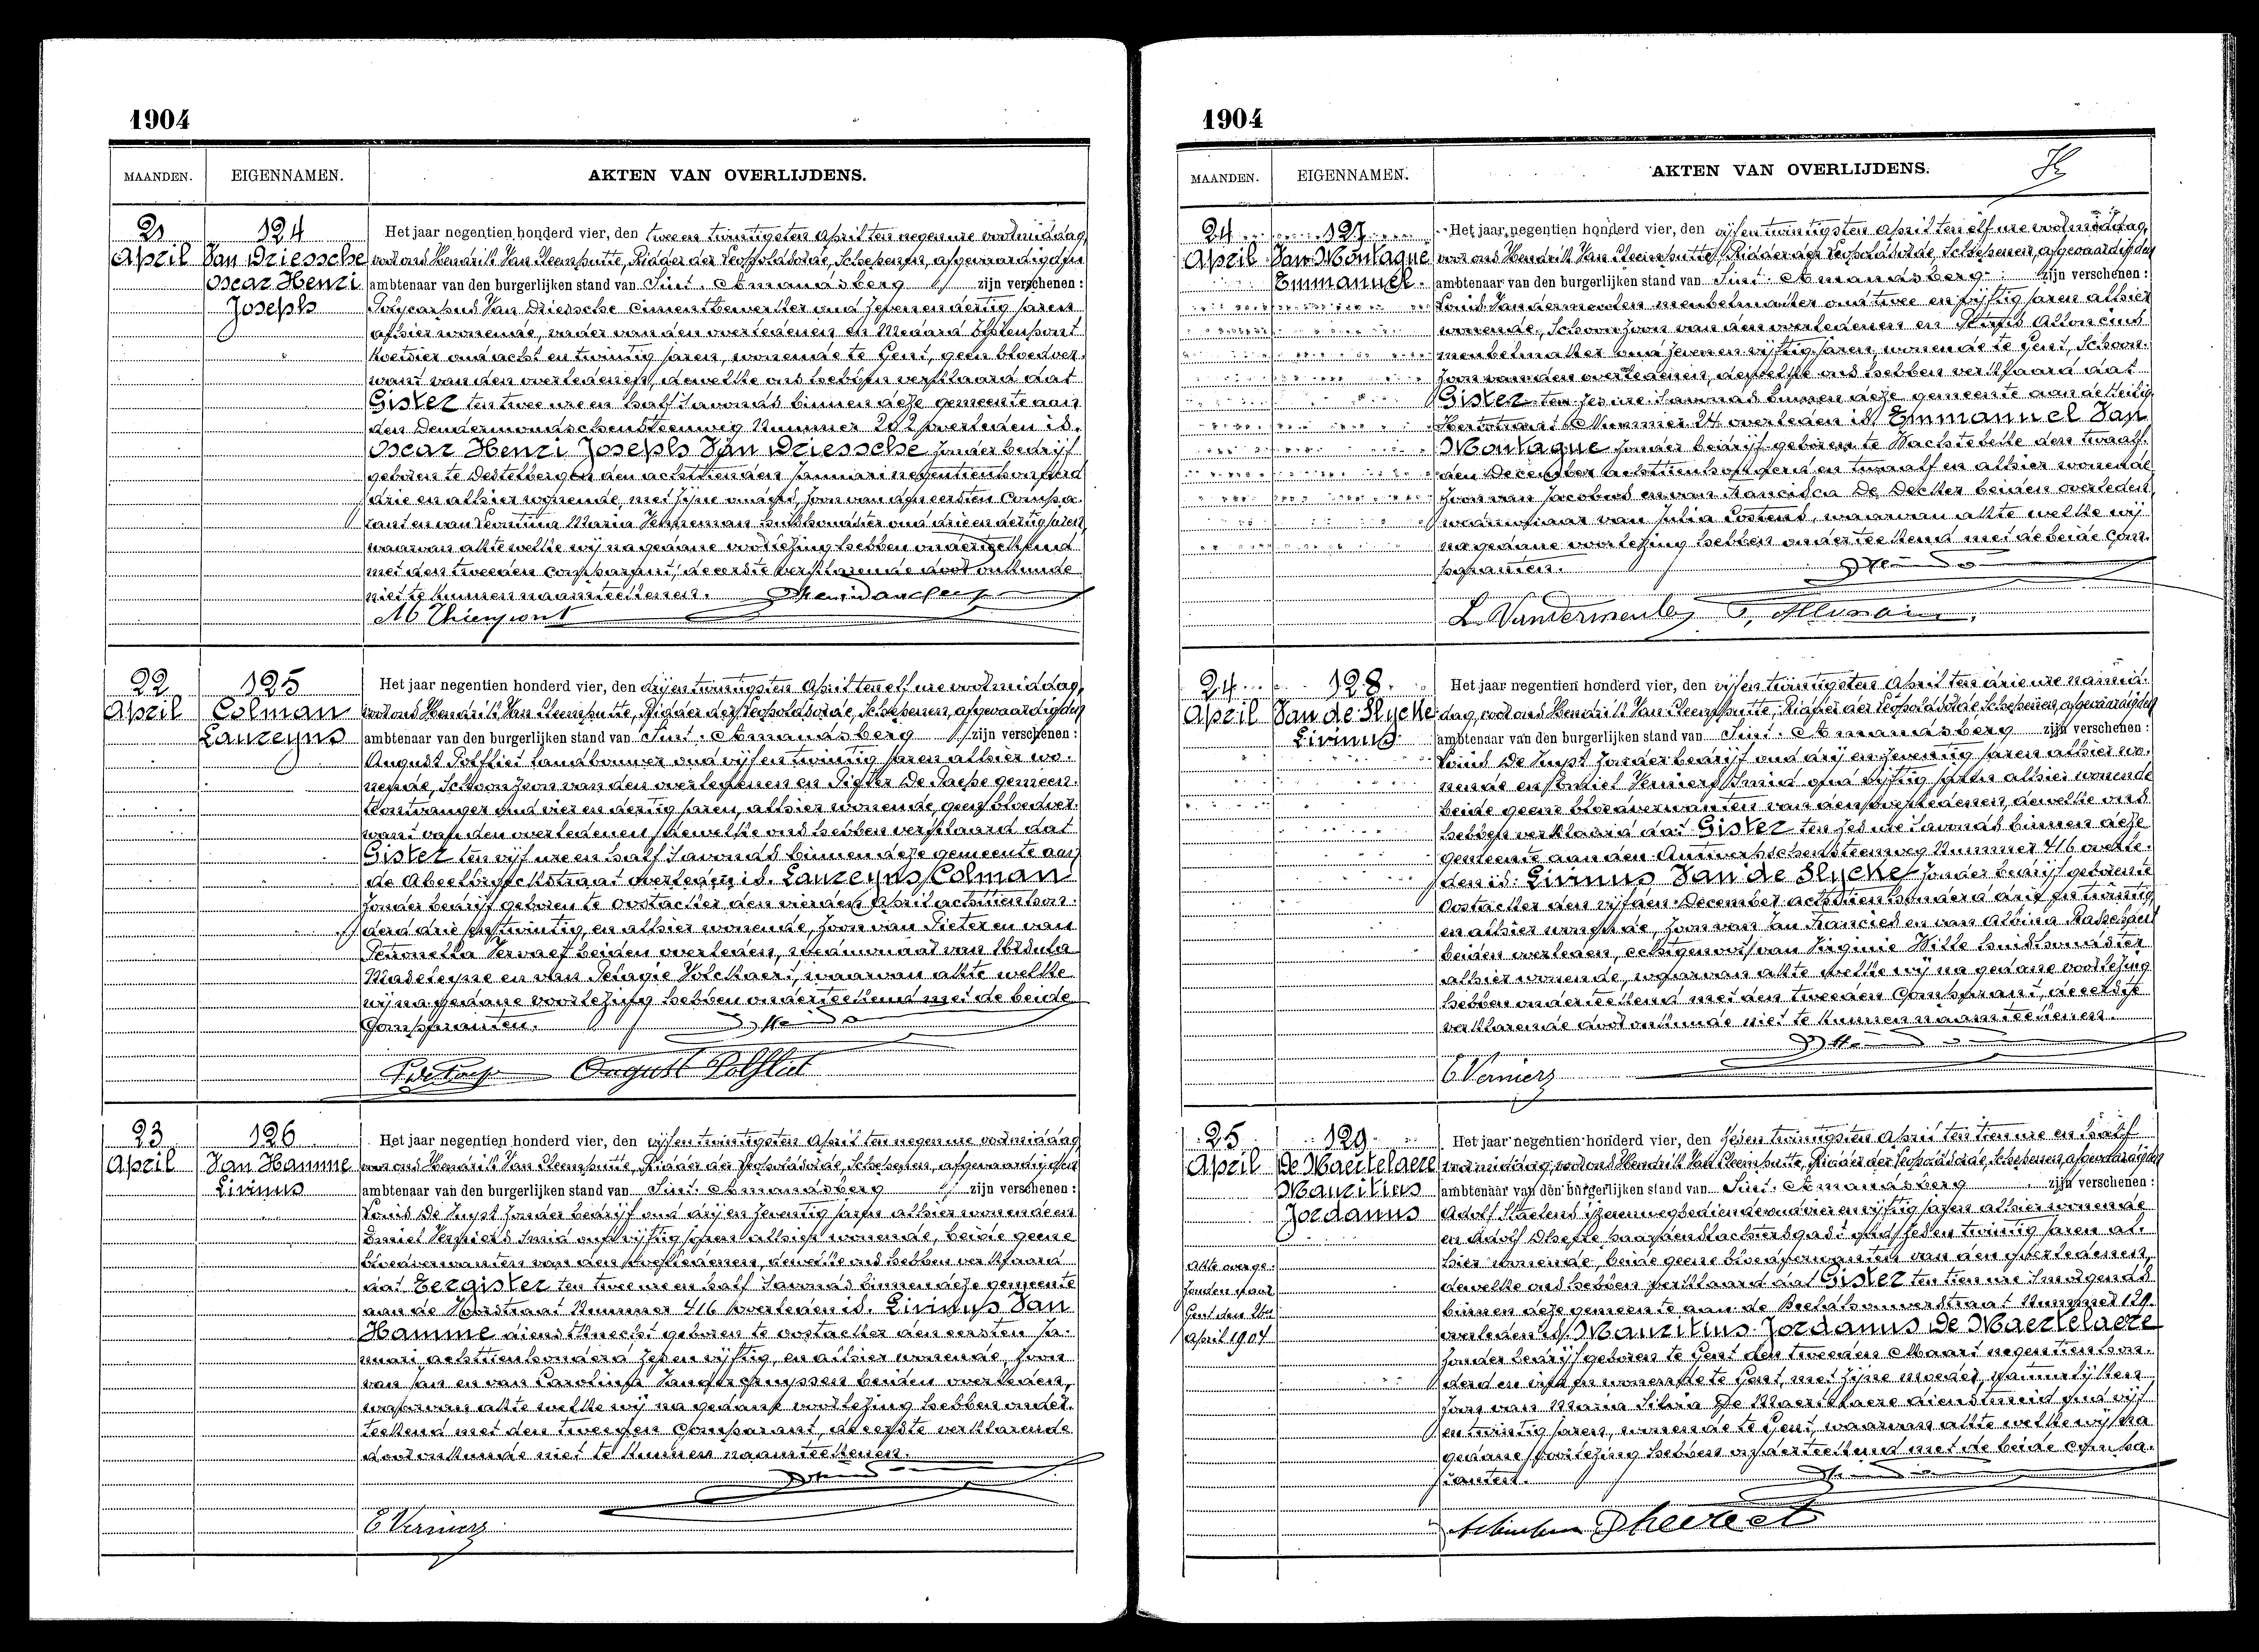 1904
MAANDEN. EIGENNAMEN. AKTEN VAN OVERLIJDENS.
21 April
124
Van Driessche
Oscar Henri
Joseph
Het jaar negentien honderd vier, den twee en twintigsten April ten negen ure voormiddag,
voor ons Hendrik Van Cleemputte, Ridder der Leopoldsorde, Schepenen, afgevaardigden
ambtenaar van den burgerlijken stand van Sint-Amandsberg zijn verschenen:
Polycarpus Van Driessche Cimentbewerker oud zeven en dertig jaren
alhier wonende, vader van den overledenen en Medard Thienpont
hovenier oud acht en twintig jaren, wonende te Gent, geen bloedver-
want van den overledenen, dewelke ons hebben verklaard dat
Gister ten twee ure en half 's avonds binnen deze gemeente aan
den Dendermondschensteenweg Nummer 202 overleden is.
Oscar Henri Joseph Van Driessche zonder bedrijf
geboren te Destelbergen den achttienden Januari negentienhonderd
drie en alhier wonende met zijne ouders, zoon van den eersten Compa-
rant en van Leontina Maria Venneman huishoudster oud drie en dertig jaren
waarvan akte welke wij na gedane voorlezing hebben onderteekend
met den tweeden Comparant, de eerste verklarende door onkunde
niet te kunnen naamteekenen.
M Thienpont
22 April
125
Colman
Laureyns
Het jaar negentien honderd vier, den drij en twintigsten April ten elf ure voormiddag,
voor ons Hendrik Van Cleemputte, Ridder der Leopoldsorde, Schepenen, afgevaardigden
ambtenaar van den burgerlijken stand van Sint-Amandsberg zijn verschenen:
August Polfliet landbouwer oud vijf en twintig jaren alhier wo-
nende, Schoonzoon van den overledenen en Pieter De Paepe gemeen-
teontvanger oud vier en dertig jaren, alhier wonende, geen bloedver-
want van den overledenen dewelke ons hebben verklaard dat
Gister ten vijf ure en half 's avonds binnen deze gemeente aan
de Abeelbroekstraat overleden is. Laureyns Colman
zonder bedrijf geboren te Oostacker den vierden April achttienhon-
derd drie en twintig, en alhier wonende, zoon van Pieter en van
Petronella Vervaet beiden overleden, weduwnaar van Ursula
Masteleyne en van Pelagie Volckaert, waarvan akte welke
wij na gedane voorlezing hebben onderteekend met de beide
Comparanten.
August Polfliet
23 April
126
Van Hamme
Livinus
Het jaar negentien honderd vier, den vijf en twintigsten April ten negen ure voormiddag
voor ons Hendrik Van Cleemputte, Ridder der Leopoldsorde, Schepenen, afgevaardigden
ambtenaar van den burgerlijken stand van Sint-Amandsberg zijn verschenen:
Louis De Zuyst zonder bedrijf oud drij en zeventig jaren alhier wonende en
Emiel Verniers Smid oud vijftig jaren alhier wonende, beide geene
bloedverwanten van den overledenen, dewelke ons hebben verklaard
dat Eergister ten twee ure en half 's avonds binnen deze gemeente
aan de Voorstraat Nummer 416 overleden is. Livinus Van
Hamme dienstknecht geboren te Oostacker den eersten Ja-
nuari achttienhonderd zeven en vijftig, en alhier wonende, zoon
van Jan en van Carolina beiden overleden,
waarvan akte welke wij na gedane voorlezing hebben onder-
teekend met den tweeden Comparant, de eerste verklarende
door onkunde niet te kunnen naamteekenen.
E Verniers
1904
MAANDEN. EIGENNAMEN. AKTEN VAN OVERLIJDENS.
24 April
127
Van Montague
Emmanuel
Het jaar negentien honderd vier, den vijf en twintigsten April ten elf ure voormiddag,
voor ons Hendrik Van Cleemputte, Ridder der Leopoldsorde, Schepenen, afgevaardigden
ambtenaar van den burgerlijken stand van Sint-Amandsberg zijn verschenen:
Louis Vandermeulen meubelmaker oud twee en vijftig jaren alhier
wonende, Schoonzoon van den overledenen en
meubelmaker oud zeven en vijftig jaren, wonende te Gent, Schoon-
zoon van den overledenen, dewelke ons hebben verklaard dat
Gister ten zes ure 's avonds binnen deze gemeente aan de Heilig
Hartstraat Nummer 24 overleden is. Emmanuel Van
Montague zonder bedrijf geboren te Wachtebeke den twaalf-
den December achttienhonderd en twaalf en alhier wonende
zoon van Jacobus en van Francisca De Decker beiden overleden,
weduwnaar van Julia Costens, waarvan akte welke wij
na gedane voorlezing hebben onderteekend met de beide Com-
paranten.
L. Vandermeulen
24 April
128
Van de Slycke
Livinus
Het jaar negentien honderd vier, den vijf en twintigsten April ten drie ure namid-
dag, voor ons Hendrik Van Cleemputte, Ridder der Leopoldsorde Schepenen, afgevaardigden
ambtenaar van den burgerlijken stand van Sint-Amandsberg zijn verschenen:
Louis De Zuyst zonder bedrijf oud drij en zeventig jaren alhier wo-
nende en Emiel Verniers Smid oud vijftig jaren alhier wonende
beide geene bloedverwanten van den overledenen, dewelke ons
hebben verklaard dat Gister ten zes ure 's avonds binnen deze
gemeente aan den Antwerpschensteenweg Nummer 416 overle-
den is. Livinus Van de Slycke zonder bedrijf geboren te
Oostacker den vijfden December achttienhonderd drie en twintig
en alhier wonende, zoon van Jan Francies en van Albina
beiden overleden, echtgenoot van Virginie Wille huishoudster
alhier wonende, waarvan akte welke wij na gedane voorlezing
hebben onderteekend met den tweeden Comparant, de eerste
verklarende door onkunde niet te kunnen naamteekenen.
E Verniers
25 April
129
De Maertelaere
Mauritius
Jordanus
Akte overge-
zonden naar
Gent den
April 1904
Het jaar negentien honderd vier, den zes en twintigsten April ten tien ure en half
voormiddag, voor ons Hendrik Van Cleemputte, Ridder der Leopoldsorde, Schepenen, afgevaardigden
ambtenaar van den burgerlijken stand van Sint-Amandsberg zijn verschenen:
Adolf Staelens ijzerenwegbediende oud vier en vijftig jaren alhier wonende
en Adolf gast oud zes en twintig jaren al-
hier wonende, beide geene bloedverwanten van den overledenen,
dewelke ons hebben verklaard dat Gister ten tien ure 's morgends
binnen deze gemeente aan de Beelbroekstraat Nummer 129
overleden is Mauritius Jordanus De Maertelaere
zonder bedrijf geboren te Gent den tweeden Maart negentienhon-
derd en vier en wonende te Gent, met zijne moeder, natuurlijken
zoon van Maria Silvia De Maertelaere dienstmeid oud vijf
en twintig jaren, wonende te Gent, waarvan akte welke wij na
gedane voorlezing hebben onderteekend met de beide Compa-
ranten.